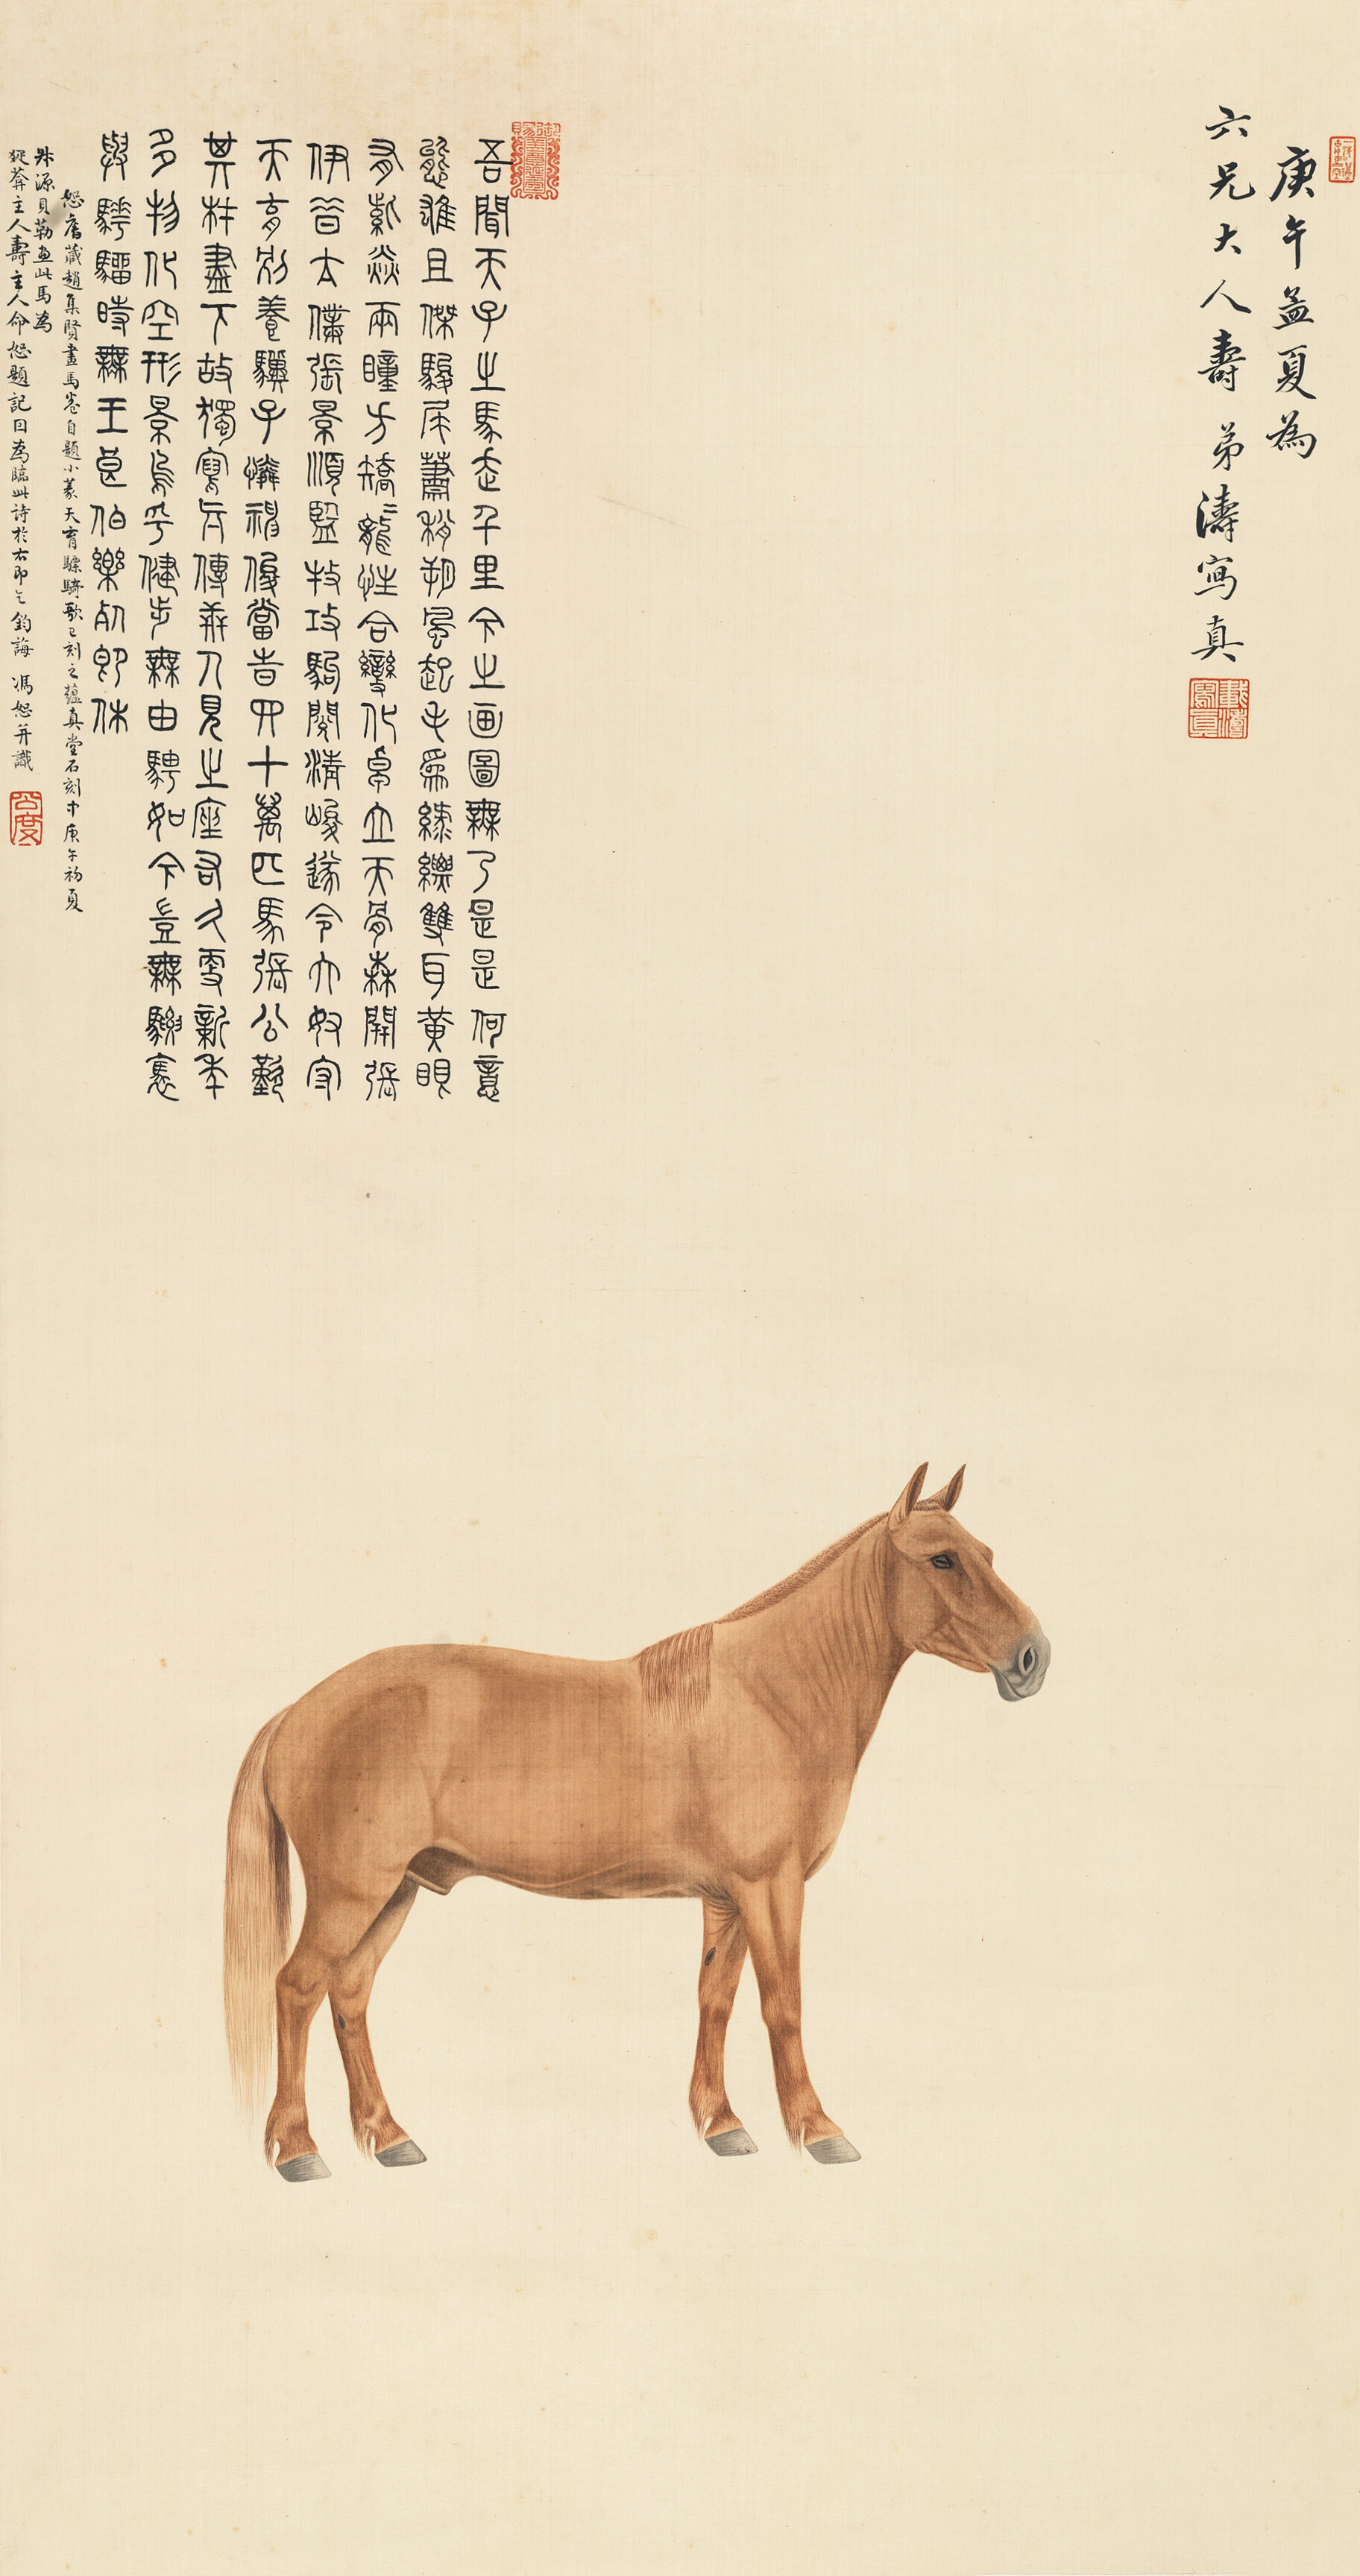 庚午孟夏為
六兄大人壽 弟濤寫真
載濤寫真
吾聞天子之馬走千里今之画圖無乃是是何意
態雄且傑駿尾蕭梢朔風起毛為綠縹雙耳黃眼
有紫焱兩瞳方矯矯龍性合變化卓立天骨森開張
伊昔太僕張景順監牧攻駒閱清峻遂令大奴守
天育別養驥子憐神俊當時四十萬匹馬張公歎
其材盡下故獨寫真傳世人見之座右久更新年
多物化空形景烏乎健步無由騁如今豈無騕褭
與驊騮時無王良伯樂死即休
恕舊藏趙集賢畫馬卷自題小篆天育驃騎歌已刻之蘊真堂石刻中庚午初夏
叔源貝勒画此馬為
葊主人壽主人命恕題記因為臨此詩於右即乞 鈞誨 馮恕并識
公度